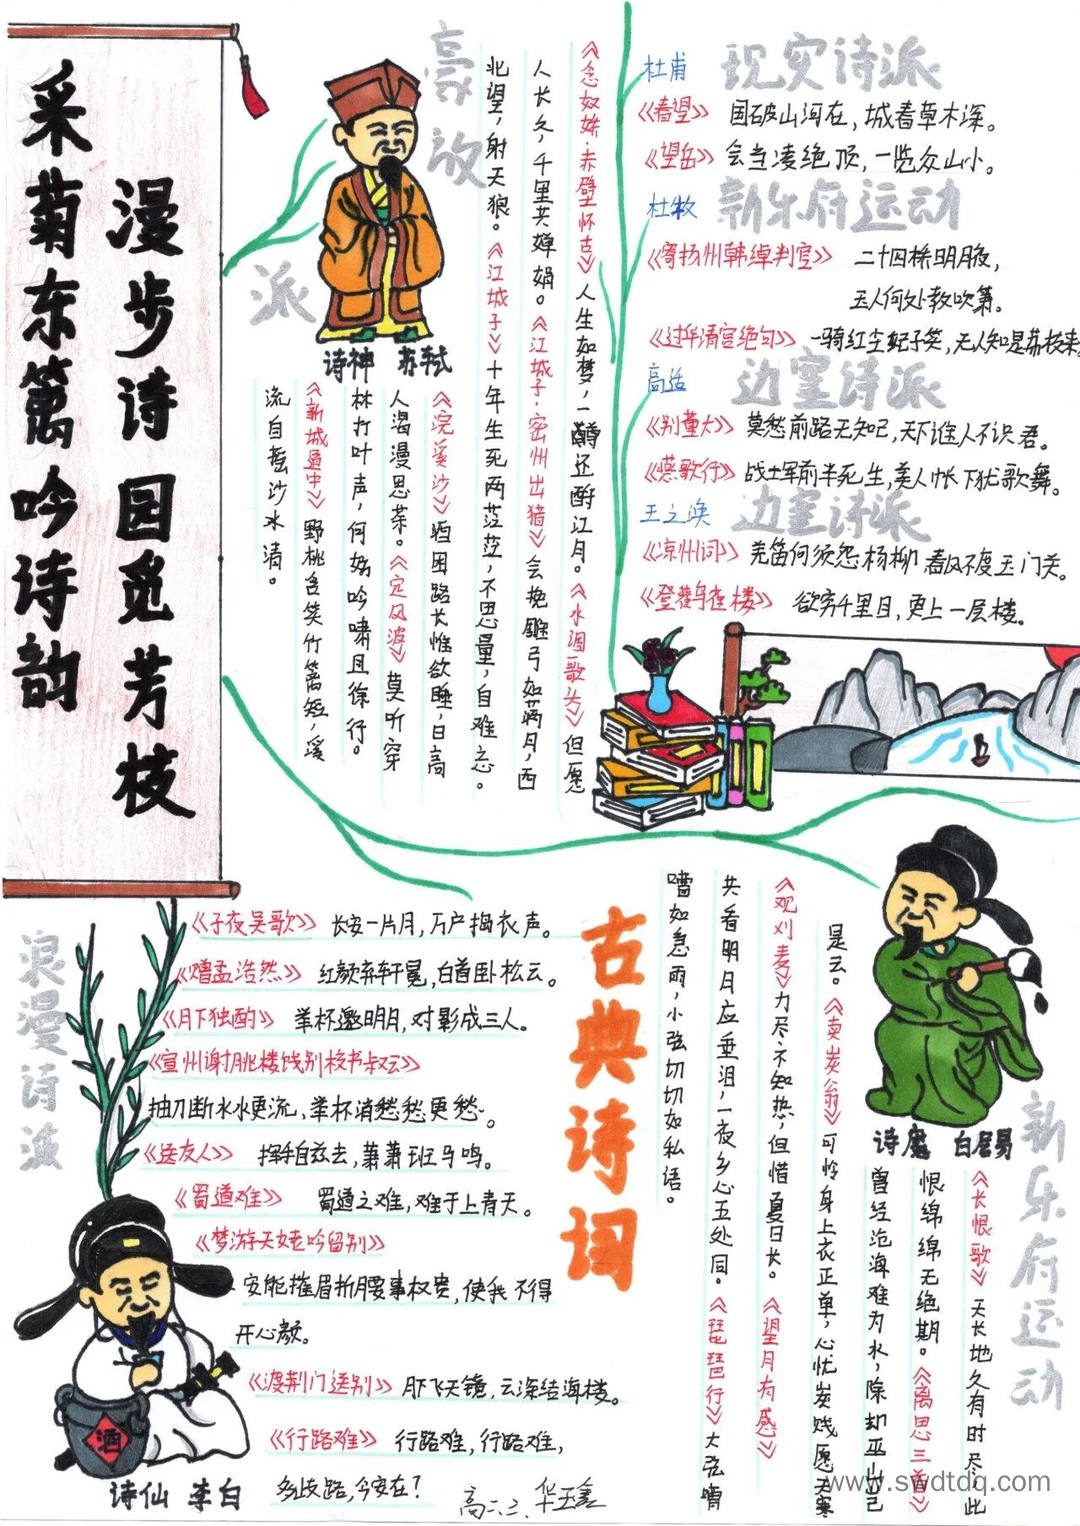 漫步诗园觅芳枝
采菊东篱吟诗韵
豪放派
诗神 苏轼
《念奴娇·赤壁怀古》人生如梦，一樽还酹江月。《水调歌头》但愿
人长久，千里共婵娟。《江城子·密州出猎》会挽雕弓如满月，西
北望，射天狼。《江城子》十年生死两茫茫，不思量，自难忘。
《浣溪沙》酒困路长惟欲睡，日高
人渴漫思茶。《定风波》莫听穿
林打叶声，何妨吟啸且徐行。
《新城道中》野桃含笑竹篱短，溪
流自摇沙水清。
杜甫 现实诗派
《春望》 国破山河在，城春草木深。
《望岳》 会当凌绝顶，一览众山小。
杜牧 新乐府运动
《寄扬州韩绰判官》 二十四桥明月夜，
玉人何处教吹箫。
《过华清宫绝句》 一骑红尘妃子笑，无人知是荔枝来
高适 边塞诗派
《别董大》 莫愁前路无知己，天下谁人不识君。
《燕歌行》 战士军前半死生，美人帐下犹歌舞。
王之涣 边塞诗派
《凉州词》 羌笛何须怨杨柳 春风不度玉门关。
《登鹳雀楼》 欲穷千里目，更上一层楼。
浪漫诗派
《子夜吴歌》 长安一片月，万户捣衣声。
《赠孟浩然》 红颜弃轩冕，白首卧松云。
《月下独酌》 举杯邀明月，对影成三人。
《宣州谢朓楼饯别校书叔云》
抽刀断水水更流，举杯消愁愁更愁。
《送友人》 挥手自兹去，萧萧班马鸣。
《蜀道难》 蜀道之难，难于上青天。
《梦游天姥吟留别》
安能摧眉折腰事权贵，使我不得
开心颜。
《渡荆门送别》 月下飞天镜，云深结海楼。
《行路难》 行路难，行路难，
多歧路，今安在？
诗仙 李白
酒
高二.二、华玉鑫
古典诗词
诗魔 白居易
新乐府运动
《长恨歌》天长地久有时尽，此
恨绵绵无绝期。《离思三首》
曾经沧海难为水，除却巫山
是云。《卖炭翁》可怜身上衣正单，心忧炭贱愿天寒
《观刈麦》力尽不知热，但惜夏日长。《望月有感》
共看明月应垂泪，一夜乡心五处同。《琵琶行》大弦嘈
嘈如急雨，小弦切切如私语。
www.swdtdq.com